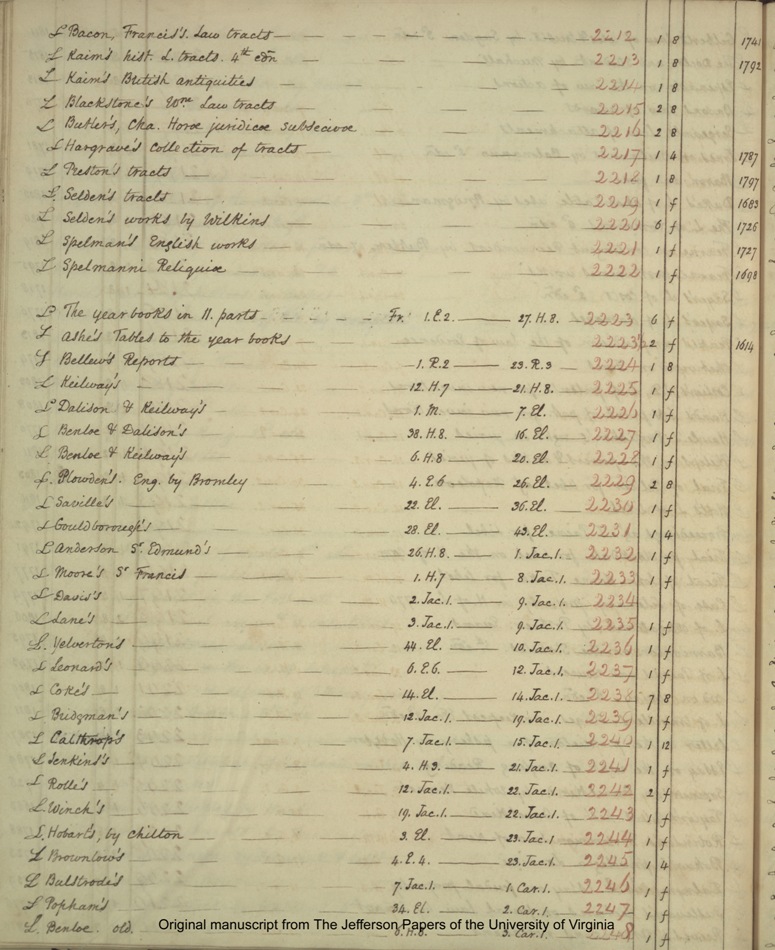 L Bacon, Francis's. Law tracts 2212 1 8 1741
L Kaim's hist. L. tracts. 4th edn 2213 1 8 1792
L Kaim's British antiquities 2214 1 8
L Blackstone's Wm Law tracts 2215 2 8
L Butler's, Cha. Horæ juridicæ subsecivæ 2216 2 8
L Hargrave's collection of tracts 2217 1 4 1787
L Preston's tracts 2218 1 8 1797
L. Selden's tracts 2219 1 f 1683
L Selden's works by Wilkins 2220 6 f 1726
L Spelman's English works 2221 1 f 1727
L Spelmanni Reliquiæ 2222 1 f 1698
L The year books in 11. parts Fr. 1.E.2. 27.H.8. 2223 6 f
L Ashe's Tables to the year books 2223 2 f 1614
L Bellew's Reports 1.R.2 23.R.3 2224 1 8
L Keilway's 12.H.7 21.H.8. 2225 1 f
L Dalison & Keilway's 1.M. 7.El. 2226 1 f
L Benloe & Dalison's 38.H.8. 16.El. 2227 1 f
L Benloe & Keilway's 6.H.8 20.El. 2228 1 f
L. Plowden's. Eng. by Bromley 4.E.6 26.El. 2229 2 8
L Saville's 22.El. 36.El. 2230 1 f
L Gouldborough's 28.El. 43.El. 2231 1 4
L Anderson Sr. Edmund's 26.H.8. 1.Jac.1. 2232 1 f
L Moore's Sr Francis 1.H.7 8.Jac.1. 2233 1 f
L Davis's 2.Jac.1. 9.Jac.1. 2234
L Lane's 3.Jac.1. 9.Jac.1. 2235 1 f
L. Yelverton's 44.El. 10.Jac.1. 2236 1 f
L Leonard's 6.E.6. 12.Jac.1. 2237 1 f
L Coke's 14.El. 14.Jac.1. 2238 7 8
L Bridgman's 12.Jac.1. 19.Jac.1. 2239 1 f
L Calthrop's 7.Jac.1. 15.Jac.1. 2240 1 12
L Jenkins's 4.H.3. 21.Jac.1. 2241 1 f
L Rolle's 12.Jac.1. 22.Jac.1. 2242 2 f
L. Winch's 19.Jac.1. 22.Jac.1. 2243 1 f
L. Hobart's, by Chilton 3.El. 23.Jac.1 2244 1 f
L Brownlow's 4.E.4. 23.Jac.1. 2245 1 4
L Bulstrode's 7.Jac.1. 1.Car.1. 2246 1 f
L Popham's 34.El. 2.Car.1. 2247 1 f
L. Benloe. old. 6.H.8. 3.Car.1. 2248 1 f
Original manuscript from The Jefferson Papers of the University of Virginia